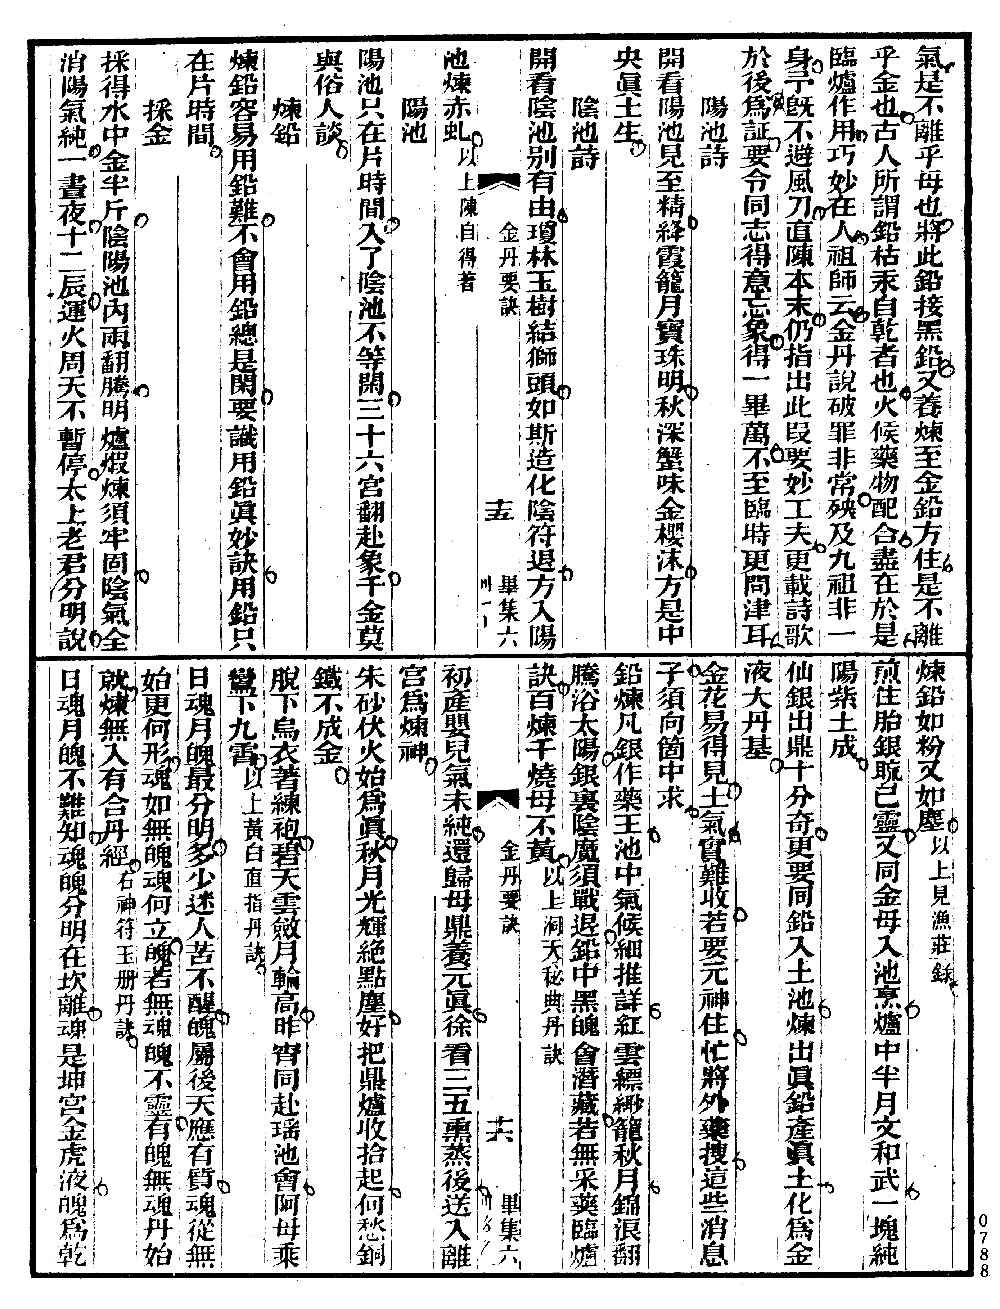 氣是不離乎母也將此鉛接黑鉛又養煉至金鉛方住是不離
乎金也古人所謂鉛枯汞自乾者也火候藥物配合盡在於是
臨爐作用巧妙在人祖師云金丹說破罪非常殃及九祖非一
身予旣不避風刀直陳本末仍指出此段要妙工夫更載詩歌
於後爲証要令同志得意忘象得一畢萬不至臨時更問津耳
陽池詩
開看陽池見至精絳霞籠月寶珠明秋深蟹味金櫻沫方是中
央眞土生
陰池詩
開看陰池別有由瓊林玉樹結獅頭如斯造化陰符退方入陽
金丹要訣 十五 畢集六
池煉赤虬以上陳自得著
陽池
陽池只在片時間入了陰池不等閑三十六宮翻赴象千金莫
與俗人談
煉鉛
煉鉛容易用鉛難不會用鉛總是閑要識用鉛眞妙訣用鉛只
在片時間
採金
採得水中金半斤陰陽池內兩翻騰明爐煆煉須牢固陰氣全
消陽氣純一晝夜十二辰運火周天不暫停太上老君分明說
煉鉛如粉又如塵以上見漁莊錄
煎住胎銀聣己靈又同金母入池烹爐中半月文和武一塊純
陽紫土成
仙銀出鼎十分奇更要同鉛入土池煉出眞鉛產眞土化爲金
液大丹基
金花易得見土氣實難收若要元神住忙將外藥搜這些消息
子須向箇中求
鉛煉凡銀作藥王池中氣候細推詳紅雲縹緲籠秋月錦浪翻
騰浴太陽銀裏陰魔須戰退鉛中黑魄會潛藏若無采藥臨爐
訣百煉千燒母不黃以上洞天秘典丹訣
金丹要訣 十六 畢集六
初產嬰兒氣未純還歸母鼎養元眞徐看三五熏蒸後送入離
宮爲煉神
朱砂伏火始爲眞秋月光輝絶點塵好把鼎爐收拾起何愁銅
鐵不成金
脫下烏衣著練袍碧天雲斂月輪高昨宵同赴瑶池會阿母乘
鸞下九霄以上黃白直指丹訣
日魂月魄最分明多少迷人苦不醒魄屬後天應有質魂從無
始更何形魂如無魄魂何立魄若無魂魄不靈有魄無魂丹始
就煉無入有合丹經右神符玉册丹訣
日魂月魄不難知魂魄分明在坎離魂是坤宮金虎液魄爲乾
0788